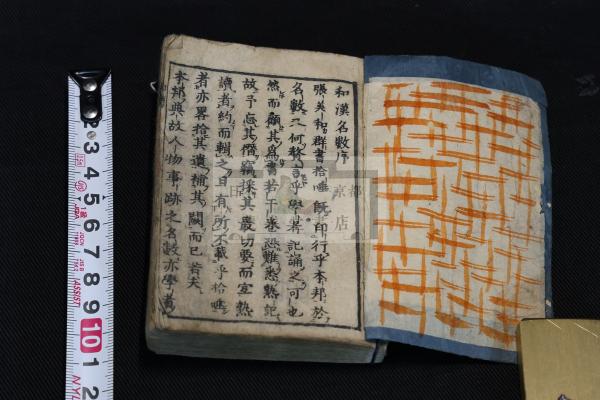 和漢名數序
張美和群書拾唾既印行乎本邦於
名數二何称言乎學者記誦之可也
然而顧其爲書若干卷恐難悉熟記
故予忘其僭竊採其最切要而宜熟
讀者約而輯之且有所不載乎拾唾
者亦畧拾其遺補其闕而已若夫
本邦典故人物事跡之名數亦學者
3
4
5
6
7
8
9
10
1
2
JIS
ASSIST
NYL
京都
店